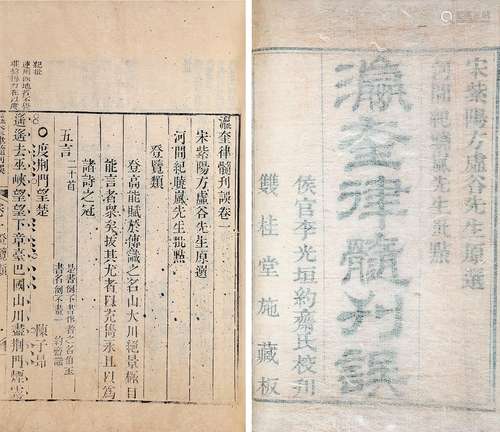 宋紫陽方虛谷先生原選
河間紀曉嵐先生批點
瀛奎律髓刊誤
侯官李光垣約齋氏校刊
雙桂堂施藏板
瀛奎律髓刊誤卷一
宋紫陽方虛谷先生原選
河間紀曉嵐先生批點
登覽類
登高能賦於傳識之名山大川絕景極目
能言者衆矣拔其尤者以充雋永且以爲
諸詩之冠
五言二十首
度荊門望楚 陳子昂
遙遙去巫峽望望下章臺巴國山川盡荊門煙霧